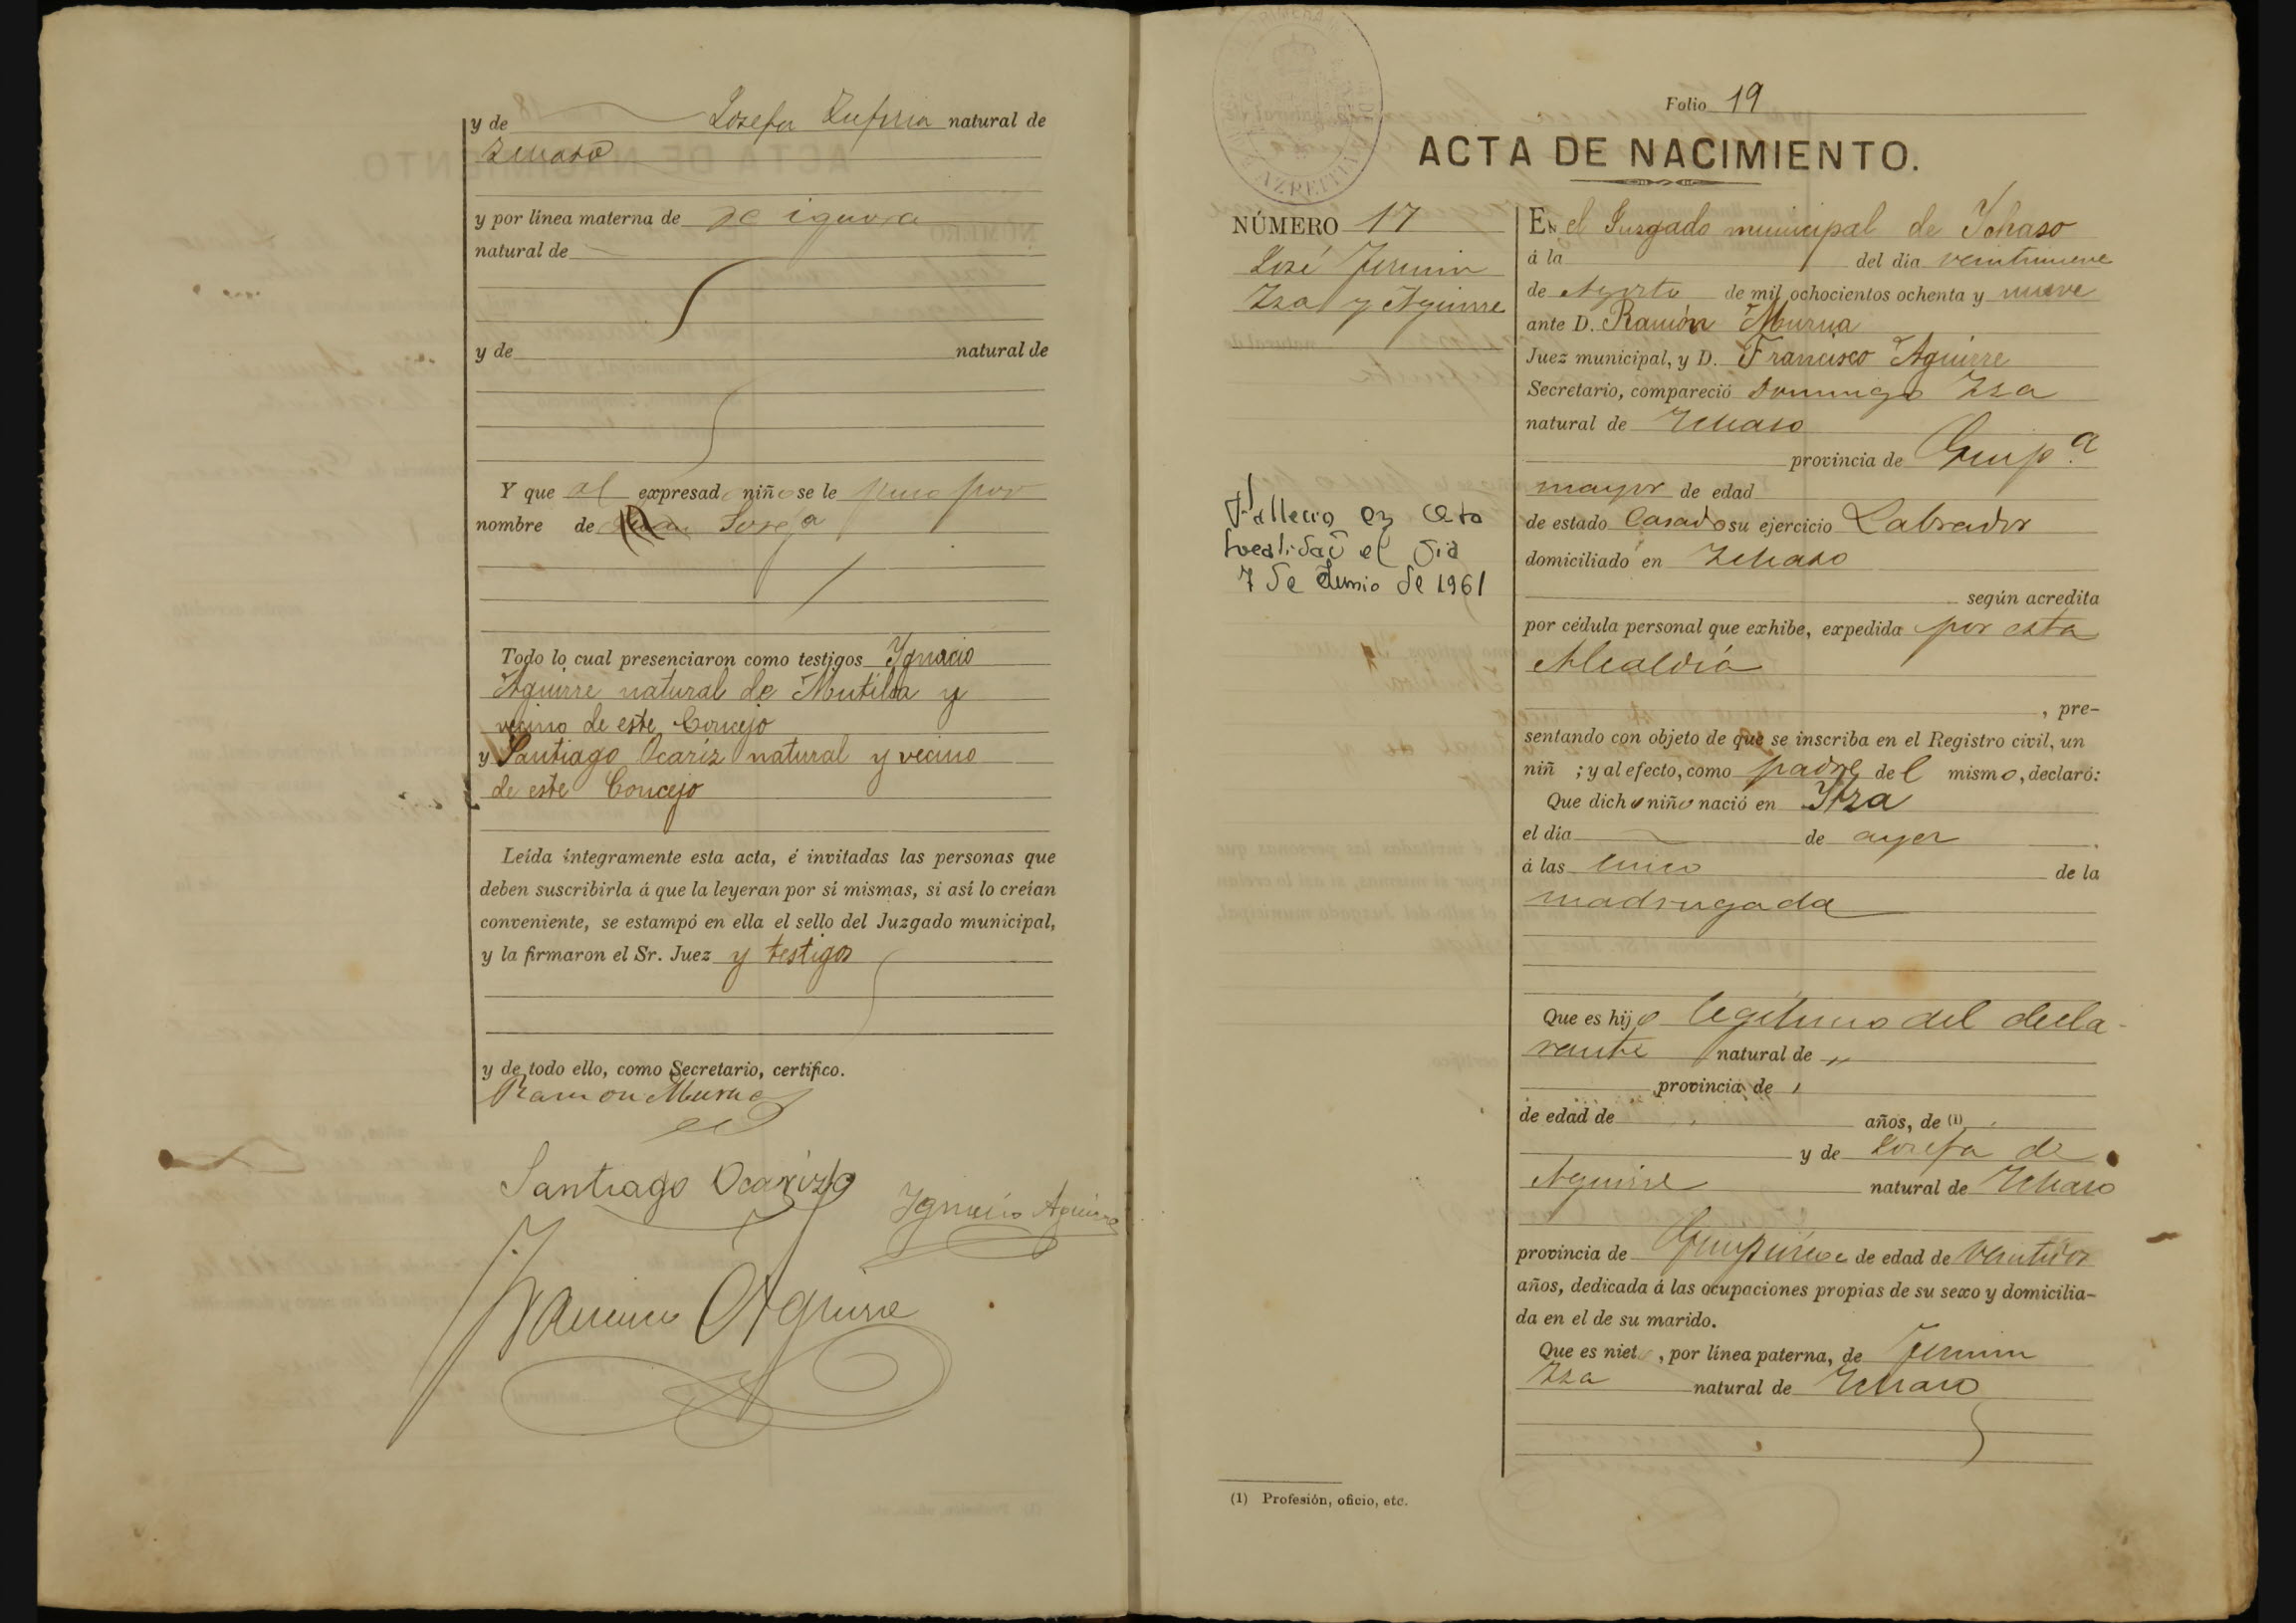 y de Josefa Zufiria natural de
Ichaso
y por línea materna de se ignora
natural de
y de natural de
Y que al expresado niño se le puso por
nombre de Josefa
Todo lo cual presenciaron como testigos Ignacio
Aguirre natural de Mutiloa y
vecino de este Concejo
y Santiago Ocariz natural y vecino
de este Concejo
Leída íntegramente esta acta, é invitadas las personas que
deben suscribirla á que la leyeran por sí mismas, si así lo creían
conveniente, se estampó en ella el sello del Juzgado municipal,
y la firmaron el Sr. Juez y testigos
y de todo ello, como Secretario, certifico.
Ramon Murua
Santiago Ocariz
Ignacio Aguirre
Francisco Aguirre
Folio 19
ACTA DE NACIMIENTO.
AZPEITIA
NÚMERO 17
José Fermin
Iza y Aguirre
Fallecio en esta
localidad el dia
7 de Junio de 1961
En el Juzgado municipal de Ichaso
á la del día veintinueve
de Agosto de mil ochocientos ochenta y nueve
ante D. Ramón Murua
Juez municipal, y D. Francisco Aguirre
Secretario, compareció Domingo Iza
natural de Ichaso
provincia de Guip.a
mayor de edad
de estado Casado su ejercicio Labrador
domiciliado en Ichaso
según acredita
por cédula personal que exhibe, expedida por esta
Alcaldía
, pre-
sentando con objeto de que se inscriba en el Registro civil, un
niñ ; y al efecto, como padre del mismo, declaró:
Que dicho niño nació en Itza
el día de ayer
á las cinco de la
madrugada
Que es hijo legitimo del decla-
rante natural de "
provincia de
de edad de años, de (1)
y de Josefa de
Aguirre natural de Ichaso
provincia de Guipúzcoa de edad de veintidos
años, dedicada á las ocupaciones propias de su sexo y domicilia-
da en el de su marido.
Que es niet , por línea paterna, de Fermin
Iza natural de Ichaso
(1) Profesión, oficio, etc.